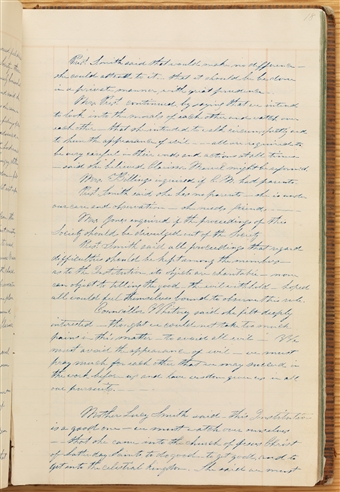 Prest. Smith said that would make no difference —
she could attend to it — that it should be done
in a private manner, with great prudence —
Mrs. Prest. continued by saying that we intend
to look into the morals of each other and watch over
each other — that she intended to walk circumspectly and
to shun the appearance of evil — all are required to
be very careful in their words and actions at all times
— said she believed Clarissa Marvel might be reproved
Mrs. Billings inquired if C. M. had parents.
Prest. Smith said she has no parents — she is under
our care and observation — she needs friends —
Mrs. Jones enquired if the proceedings of this
Society should be divulged out of the Society
Prest. Smith said all proceedings that regard
difficulties should be kept among the members —
as to the Institution, its objects are charitable — none
can object to telling the good, the evil withhold — hoped
all would feel themselves bound to observe this rule.
Counsellor Whitney said she felt deeply
interested — thought we could not take too much
pains in this matter — to avoid all evil — We
must avoid the appearance of evil — we must
pray much for each other that we may succeed in
the work before us and have wisdom given us in all
our pursuits. —
Mother Lucy Smith said — This Institution
is a good one — we must watch over ourselves
— that she came into the church of Jesus Christ
of Latter day Saints to do good — to get good, and to
get into the celestial kingdom — She said we must